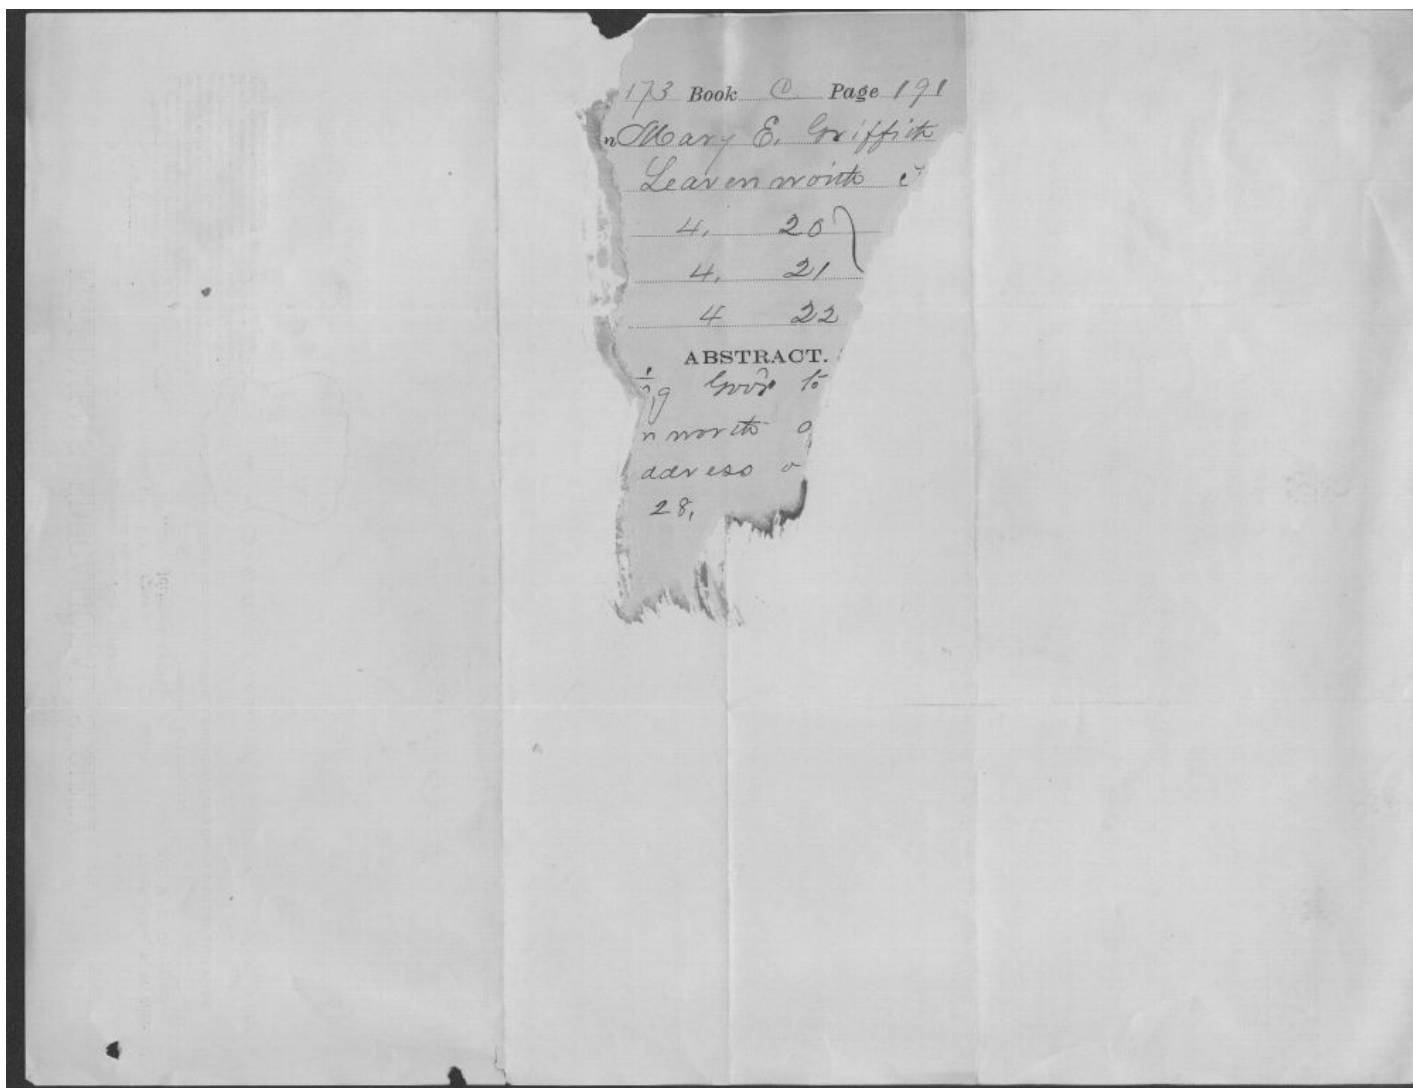 173 Book C Page 191
n Mary E. Griffith
Leavenworth
4, 20
4, 21
4 22
ABSTRACT.
g Gov'r to
nworth o
address o
28,